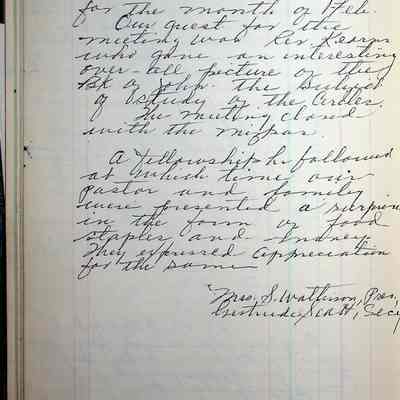 for the month of Feb.
Our guest for the
meeting was Rev Kearns
who gave an interesting
over-all picture of the
Bk of John. the subject
of study of the Circles.
The meeting closed
with the mizpas.
A Fellowship hr followed
at which time our
pastor and family
were presented a surprise
in the form of food
staples and
They expressed appreciation
for the same
Mrs. S. Watterson, Pres,
Gertrude Scott, Secy